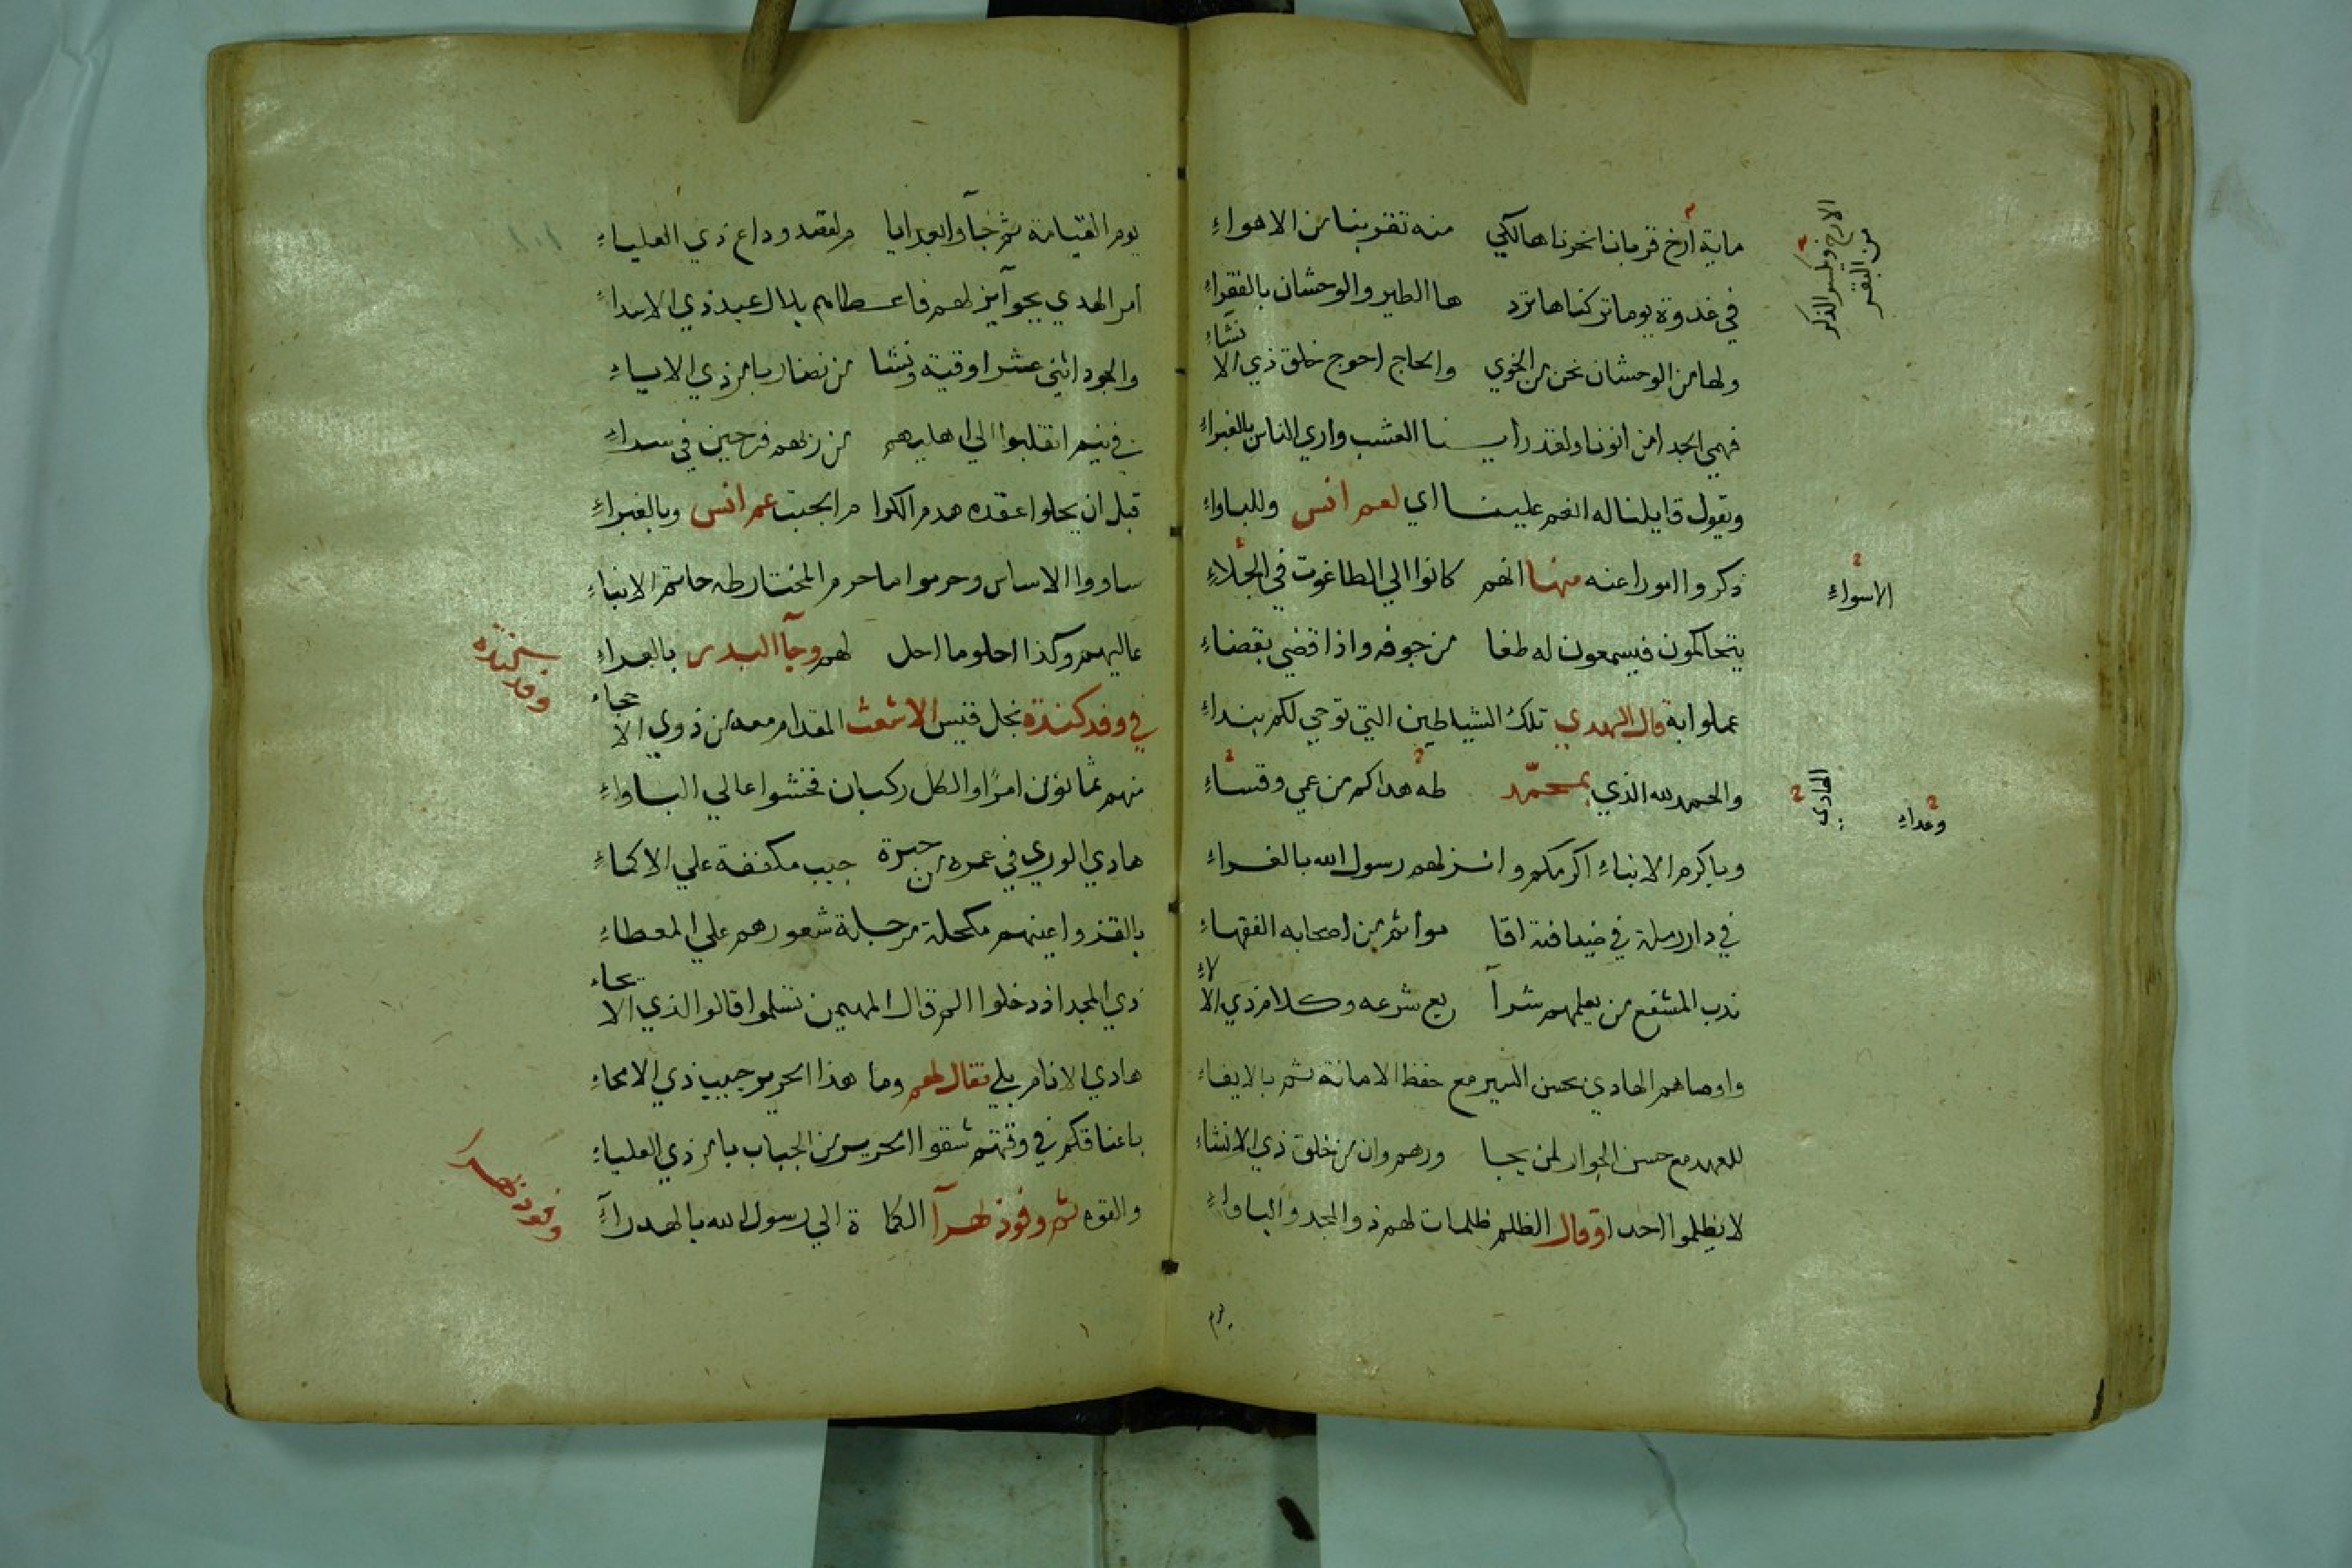 ماية أرخ قربانا نحرناها لكي منه تقربنا من الاهواءِ
الارخ
من البقر
في غدوة يوما تركناها ترد ها الطير والوحشان بالفقراءِ
ولها من الوحشان نحن من الخوي والحاج احوج خلق ذي الانشاءِ
ولقد راينا العشب واري الناس بالغبراءِ
ونقول قايلنا له انعم علينا اي لعم انس وللباواءِ
ذكروا امورا عنه منها انهم كانوا الي الطاغوت في الجلاءِ
الاسواءِ
يتحاكمون فيسمعون له طغا من جوفه واذا قضي بقضاءِ
عملوا به قال الهدي تلك الشياطين التي توحي لكم بنداءِ
والحمد لله الذي بمحمّد طه هداكم من عمي وقساءِ
الهادي
وعداءِ
وباكرم الانباءِ اكرمكم وانزلهم رسول الله بالغراءِ
في دار رملة في ضيافته اقا موا ثم من اصحابه الفقهاءِ
ندب المشفع من يعلمهم شرآ يع شرعه وكلام ذي الالاءِ
واوصاهم الهادي بحسن السير مع حفظ الامانة ثم بالايفاءِ
للعهد مع حسن الجوار لمن يجا ورهم وان من خلق ذي الانشاءِ
لا يظلموا احدا وقال الظلم ظلمات لهم ذو المجد والباواءِ
يوم
يوم القيامة ثم جآوا بعد ايا م لقصد وداع ذي العلياءِ
امر الهدي بجوآيز لهم فاعطاهم بلال عبد ذي الابداءِ
والجود اثني عشر اوقية ونشا من نضار بامر ذي الاساءِ
انقلبوا الي اهليهم من ربهم فرحين في سداءِ
قبل ان يحلوا عقده هدم الكرام الجبت عم انس وبالغبراءِ
ساووا الاساس وحرموا ما حرم المختار طه خاتم الانباءِ
عاليهم وكذا احلو ما احل لهم وجآ البدر بالعداءِ
وفد كندة
في وفد كندة نجل قيس الاشعث المقدام معه من ذوي الاحجاء
منهم ثمانون امرًا والكل ركبان فخشوا عالي الباواءِ
هادي الوري في عمره من حبرة جبب مكففة علي الاكماءِ
بالقز واعينهم مكحلة مرجلة شعورهم علي المعطاءِ
ذي المجد اذ دخلوا الم قال المهيمن تسلموا قالوا الذي الا
هادي الانام بلي فقال لهم وما هذا الحرير حبيب ذي الامحاءِ
باعناقكم في وقتهم شقوا الحرير من الجباب بامر ذي العلياءِ
والقوه ثم وفود بهرآ الكما ة الي رسول الله بالهدرآءِ
وفود بهرا